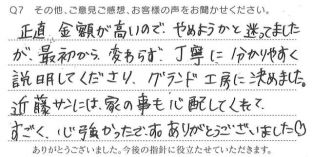 Q7 その他、ご意見ご感想、お客様の声をお聞かせください。
正直 金額が高いので、やめようかと迷ってました
が、最初から 変わらず、丁寧に 分かりやすく
説明してくださり、グランド工房に決めました。
近藤サンには、家の事も心配してくれて、
すごく、心強かったです。ありがとうございました♡
ありがとうございました。今後の指針に役立たせていただきます。